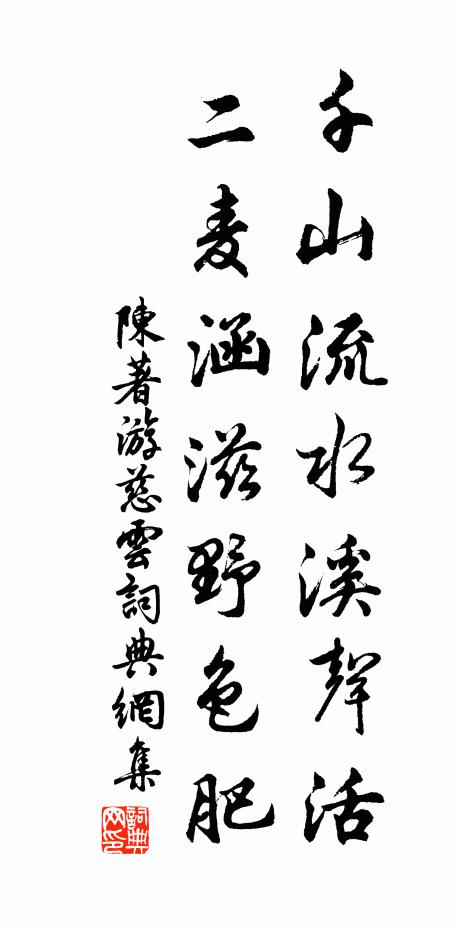 千山流水溪聲活
二麦涵滋野色肥
陳著游慈雲詞典網集
詞典網印